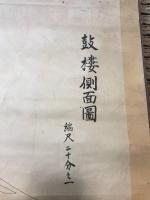 鼓楼側面圖
縮尺二十分之一